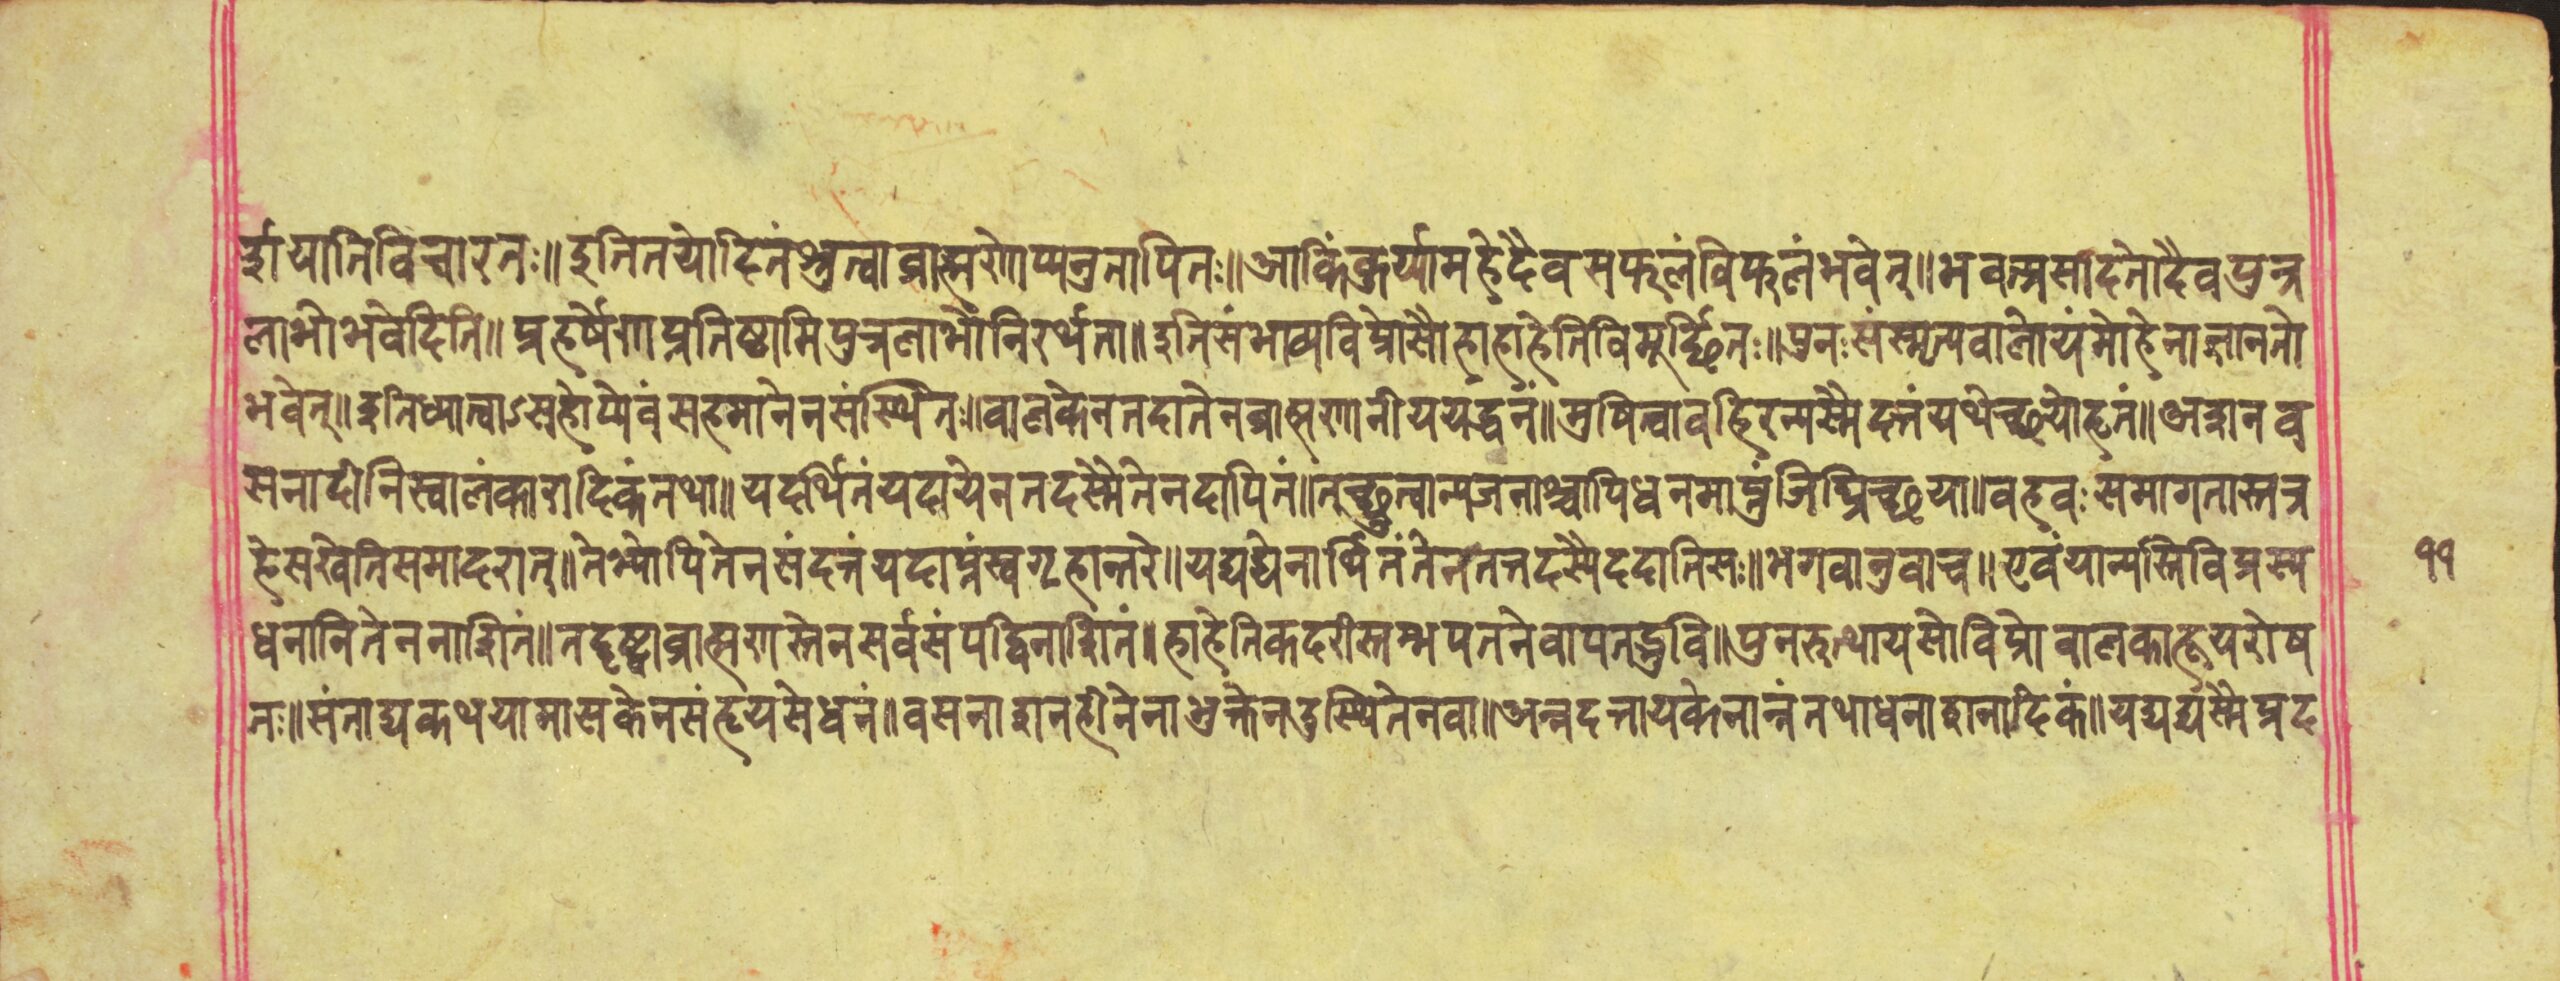 र्द्दायातिविचारतः॥इतितयोदितंश्रुत्वाब्राह्मणोप्यनुतापितः॥आकिंकुर्य्यामहेदैवसफलंविफलंभवेत्॥भवत्प्रसादतोदैवपुत्र
लाभोभवेदिति॥प्रहर्षेणप्रतिष्ठामिपुत्रलाभोनिरर्थता॥इतिसंभाव्यविप्रोसौहाहाहेतिविमूर्च्छितः॥पुनःसंस्मृत्यवालोयंमोहेनाज्ञानतो
भवेत्॥इतिध्यात्वाऽसहोप्येवंसहमानेनसंस्थितः॥वालकेनतदातेनब्राह्मणानीययद्धनं॥मुषित्वावहिरन्यस्मैदत्तंयथेच्छयोहृतं॥अन्नपानव
सनादीनिस्वालंकारादिकंतथा॥यदर्थितंयदायेनतदस्मैतेनदापितं॥तच्छ्रुत्वान्यजनाश्चापिधनमाप्तुंजिघ्रिच्छया॥वहवःसमागतास्तत्र
हेसखेतिसमादरात्॥तेभ्योपितेनसंदत्तंयदाप्नंस्वगृहान्तरे॥यद्यद्येनार्थितंतेनतत्तदस्मैददातिसः॥भगवानुवाच॥एवंयान्यस्तिविप्रस्य
धनानितेननाशितं॥तद्दृष्ट्वाब्राह्मणस्तेनसर्वसंपद्विनाशितं॥हाहेतिकदरीस्तम्भपतनेवापतद्भुवि॥पुनरुत्थायसोविप्रोवालकाहूयरोष
तः॥संताड्यकथयामासकेनसंहृयसेधनं॥वसनापानहीनेनाभुक्तेनदुस्थितेनवा॥अन्नदत्तायकेनान्नंतथाधनाद्दानादिकं॥यद्यद्यस्मैप्रद
११